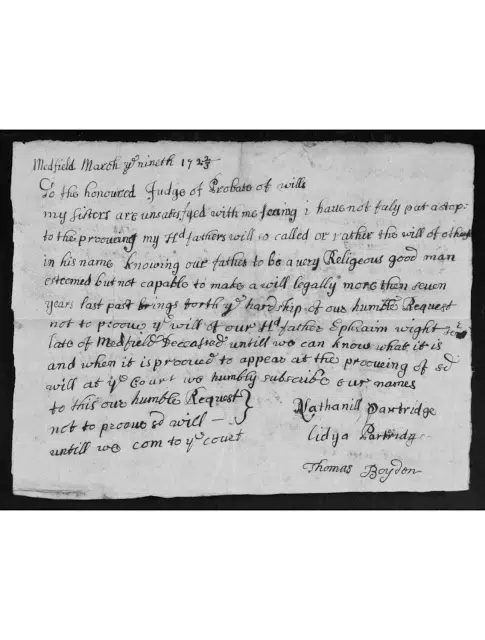 Medfield March yͤ nineth 172⅔
To the honoured Judge of Probate of wills
my sisters are unsatisfyed with me seing i haue not fuly put a stop:
to the proouing my Hd fathers will so called or rather the will of others
in his name knowing our father to be a uery Religeous good man
esteemed but not capable to make a will legally more then seuen
years last past brings forth yͤ hardship of our humble Request
not to prooue yͤ will of our Hd father Ephraim wight
late of Medfield Deceased untill we can know what it is
and when it is prooued to appear at the proouing of sd
will at yͤ Court we humbly subscribe our names
to this our humble Request
not to prooue sd will —
untill we com to yͤ court
Nathanill Partridge
Lidya Partridge
Thomas Boyden